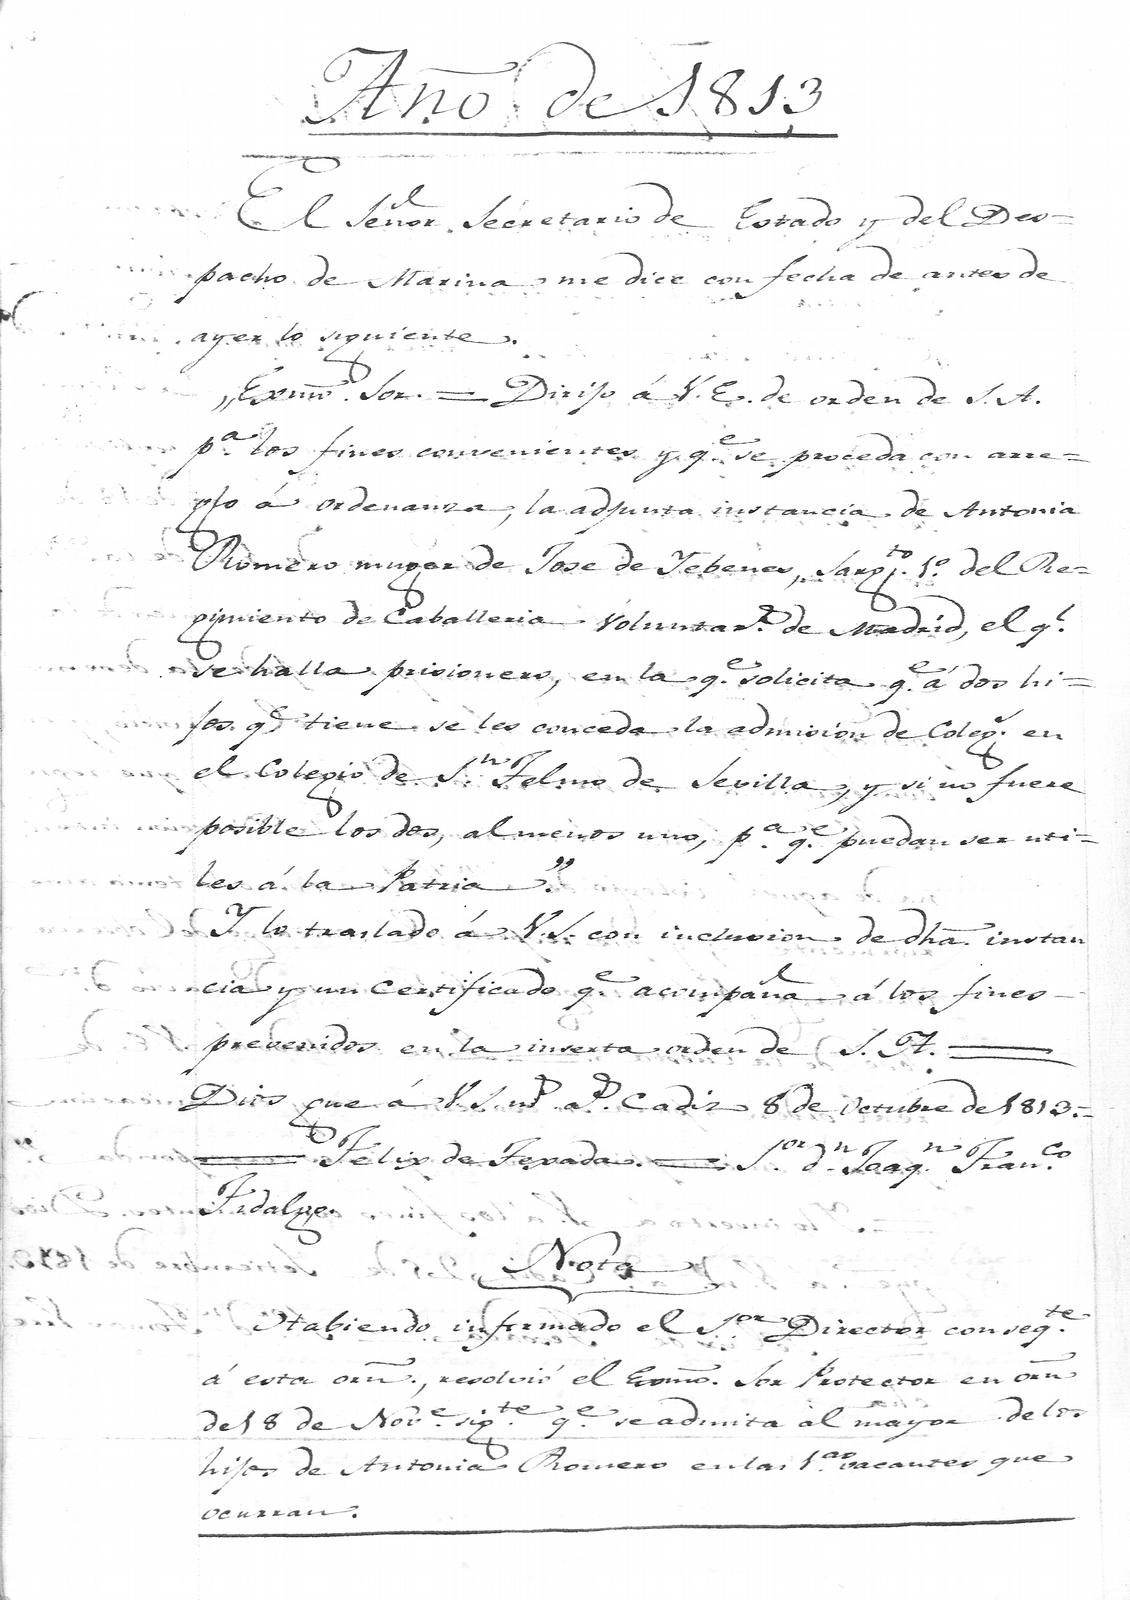 Año de 1813
El Señor Secretario de Estado y del Des=
pacho de Marina me dice con fecha de antes de
ayer lo siguiente.
„Exmō. Sor. = Dirijo á V. E. de orden de S. A.
pª. los fines convenientes y qᵉ. se proceda con arre=
glo á ordenanza, la adjunta instancia de Antonia
Romero muger de Jose de Yebenes, Sargᵗᵒ. 1º. del Re=
gimiento de Caballeria Voluntarˢ. de Madrid, el qˡ.
se halla prisionero, en la qᵉ. solicita qᵉ. á dos hi=
jos qᵉ. tiene se les conceda la admision de Colegˢ. en
el Colegio de Sⁿ. Telmo de Sevilla, y si no fuere
posible los dos, al menos uno, pª. qᵉ. puedan ser uti=
les á la Patria.”
Y lo traslado á V. S. con inclusion de dhā. instan
cia y un certificado qᵉ. acompaña á los fines
prevenidos en la inserta orden de S. A. =
Dios gue á V. S. mˢ. aˢ. Cadiz 8 de Octubre de 1813.=
= Felix de Texada. = Sᵒʳ. dⁿ. Joaqⁿ. Franᶜᵒ.
Fidalgo.
Nota
Habiendo informado el Sᵒʳ. Director conseqᵗᵉ.
á esta orn̄., resolvió el Exmō. Sor Protector en orn̄
de 18 de Novᵉ. sigᵗᵉ. qᵉ. se admita al mayor de los
hijos de Antonia Romero en las 1ᵃˢ. vacantes que
ocurran.